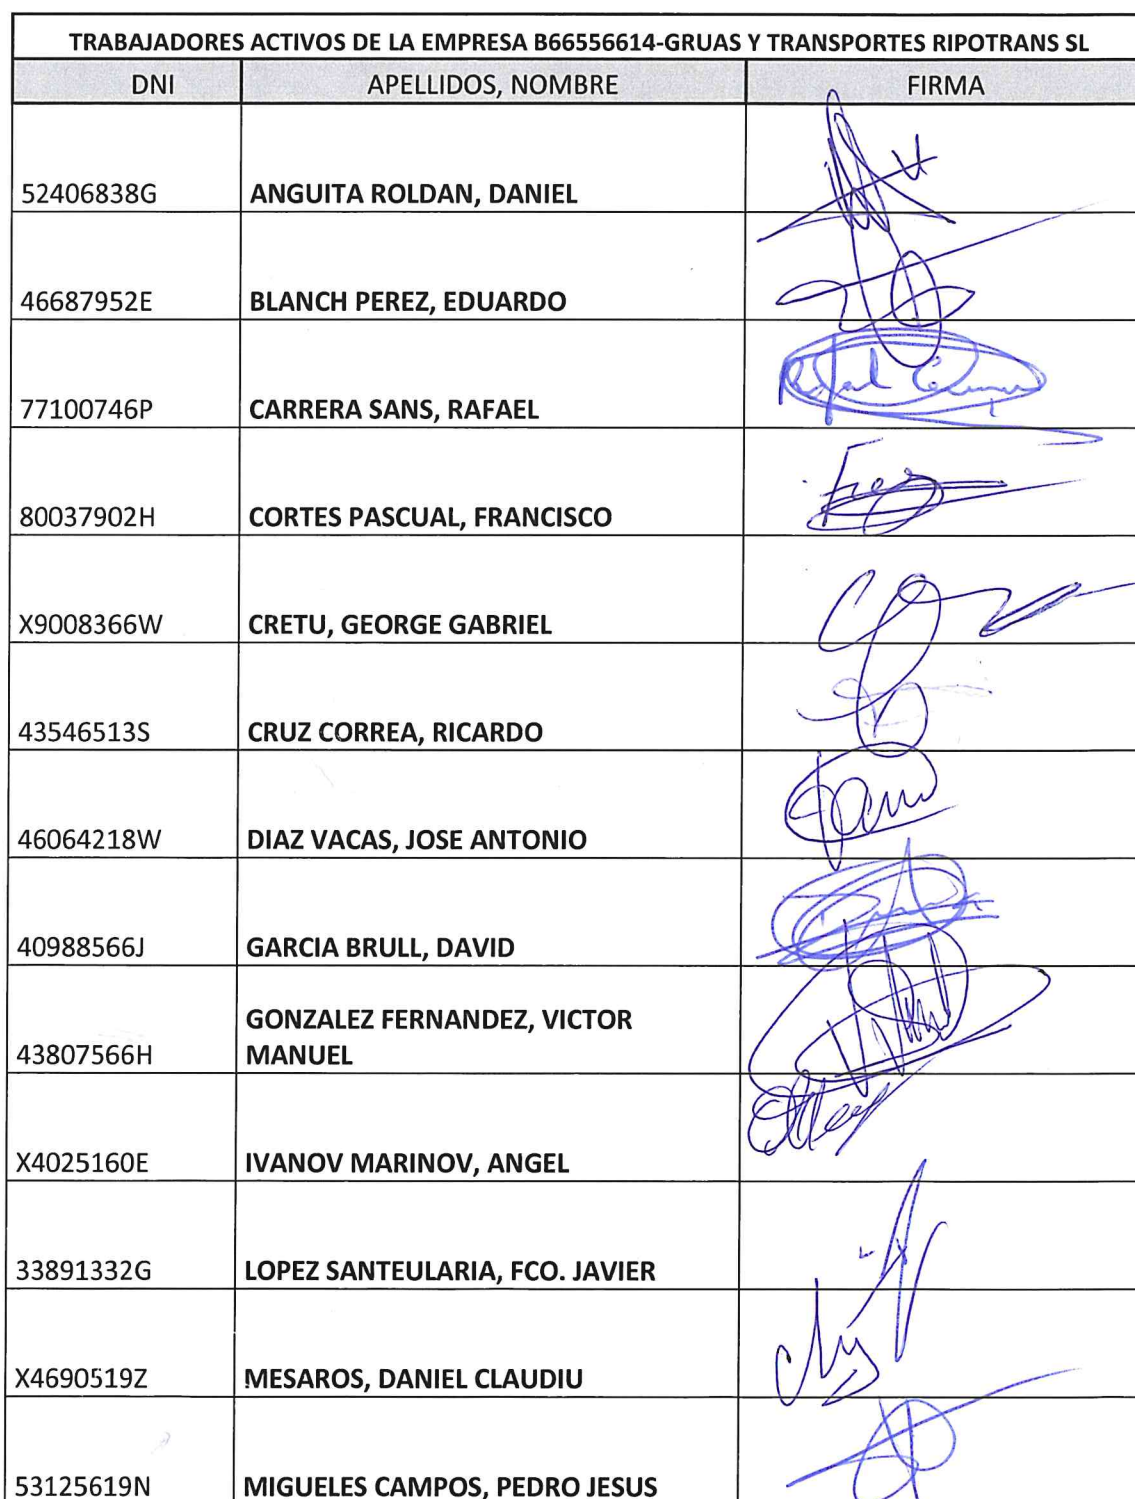 TRABAJADORES ACTIVOS DE LA EMPRESA B66556614-GRUAS Y TRANSPORTES RIPOTRANS SL
DNI APELLIDOS, NOMBRE FIRMA
52406838G ANGUITA ROLDAN, DANIEL
46687952E BLANCH PEREZ, EDUARDO
77100746P CARRERA SANS, RAFAEL
80037902H CORTES PASCUAL, FRANCISCO
X9008366W CRETU, GEORGE GABRIEL
43546513S CRUZ CORREA, RICARDO
46064218W DIAZ VACAS, JOSE ANTONIO
40988566J GARCIA BRULL, DAVID
GONZALEZ FERNANDEZ, VICTOR
43807566H MANUEL
X4025160E IVANOV MARINOV, ANGEL
33891332G LOPEZ SANTEULARIA, FCO. JAVIER
X4690519Z MESAROS, DANIEL CLAUDIU
53125619N MIGUELES CAMPOS, PEDRO JESUS